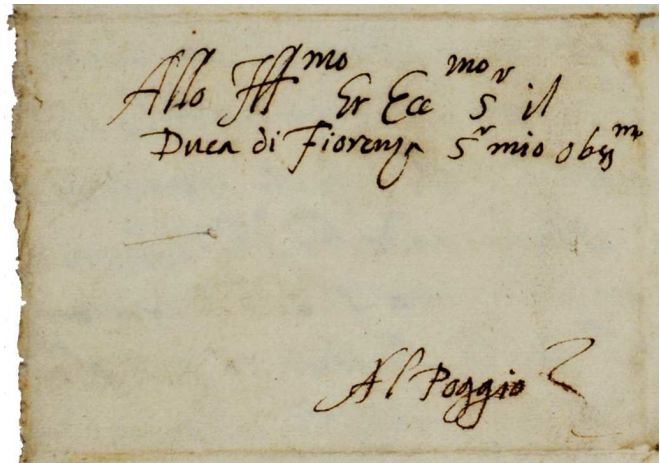 Allo Ill^mo Et Ecc^mo S^r il
Duca di Fiorenza S^r mio obss^mo
Al Poggio